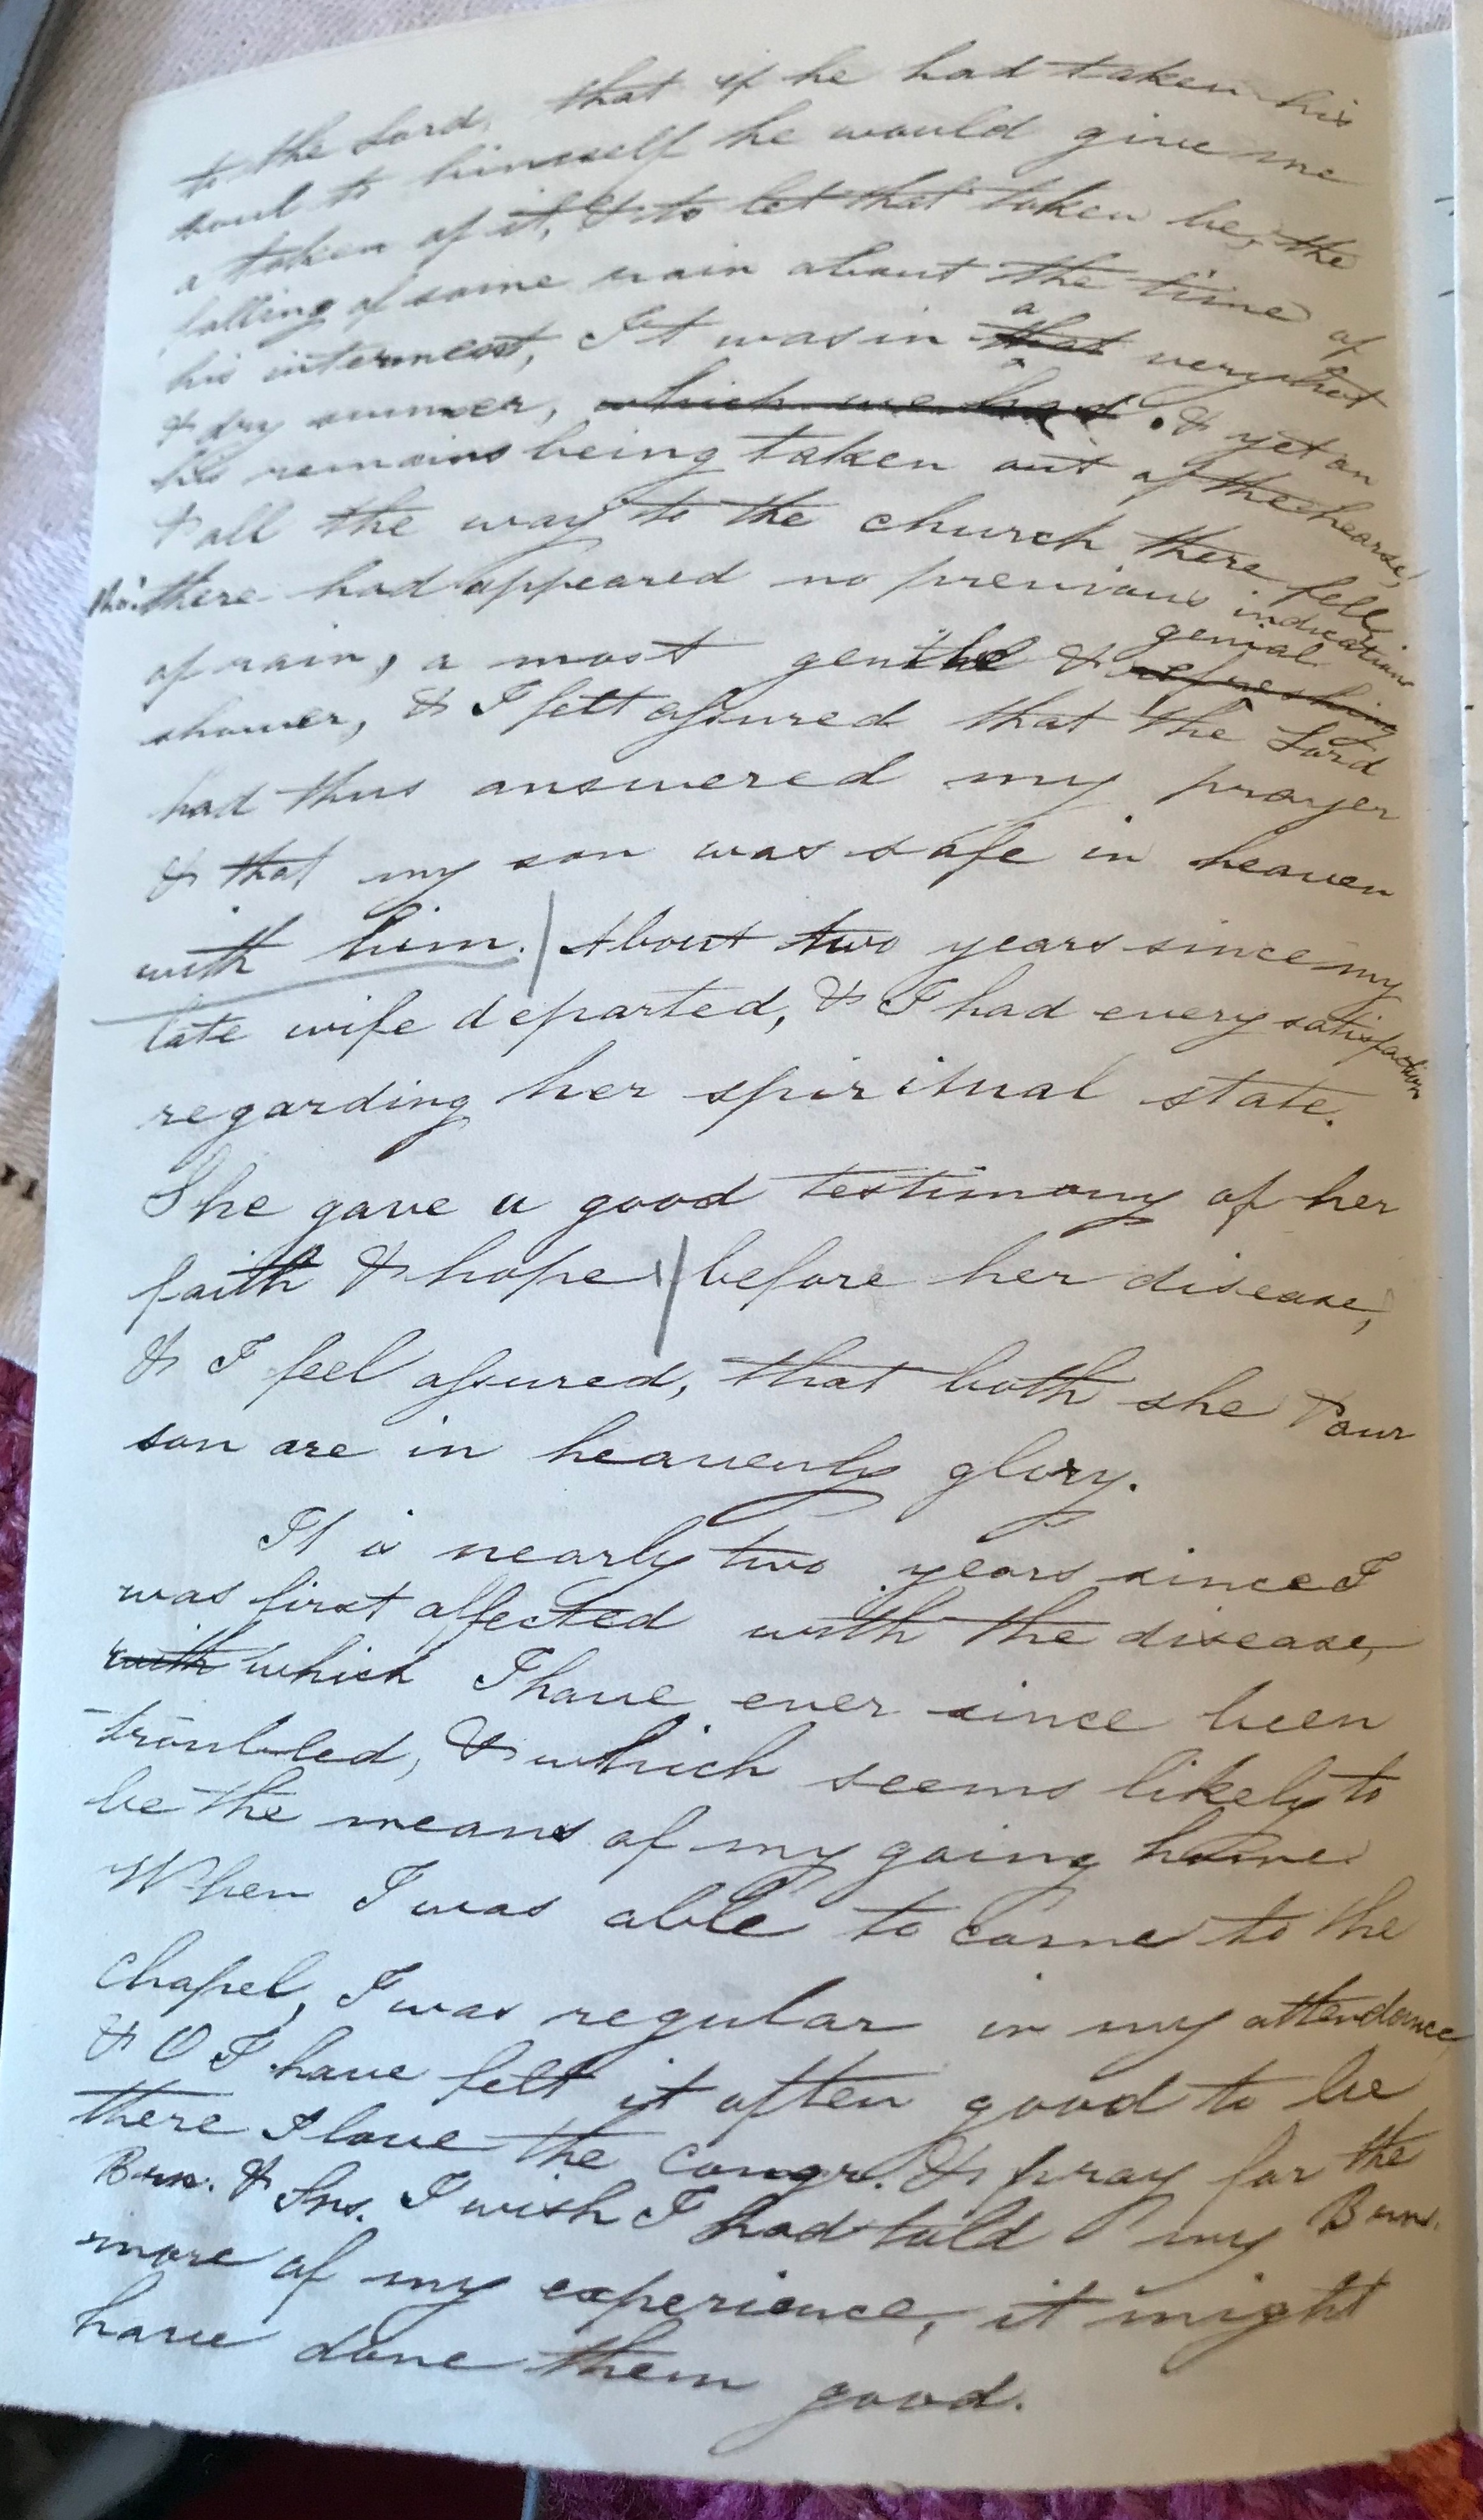 to the Lord, that if he had taken his
soul to himself he would give me
a token of it, & to let that token be, the
falling of some rain about the time of
his interment, It was in a that very hot
& dry summer, which we had. & yet on
his remains being taken out of the hearse,
& all the way to the church there fell
tho' there had appeared no previous indications
of rain, a most gentle & genial refreshing
shower, & I felt assured that the Lord
had thus answered my prayer
& that my son was safe in heaven
with him. About two years since my
late wife departed, & I had every satisfaction
regarding her spiritual state.
She gave a good testimony of her
faith & hope before her disease,
& I feel assured, that both she & our
son are in heavenly glory.
It is nearly two years since I
was first affected with the disease,
with which I have ever since been
troubled, & which seems likely to
be the means of my going home
When I was able to come to the
chapel, I was regular in my attendance,
& O I have felt it often good to be
there I love the congr. & pray for the
Brn. & Srs. I wish I had told my Brn.
more of my experience, it might
have done them good.